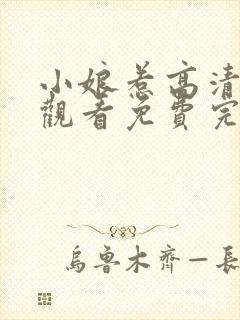 小娘惹高清
觀看免費完
烏魯木齊－長